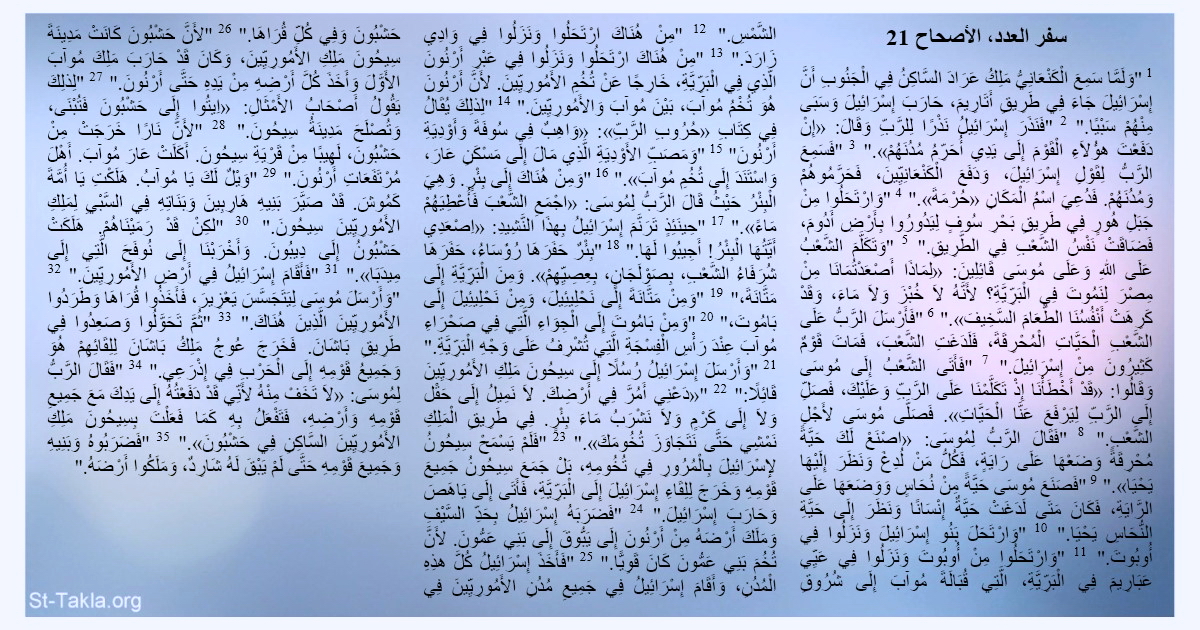 سفر العدد، الأصحاح 21
1 "وَلَمَّا سَمِعَ الْكَنْعَانِيُّ مَلِكُ عَرَادَ السَّاكِنُ فِي الْجَنُوبِ أَنَّ
إِسْرَائِيلَ جَاءَ فِي طَرِيقِ أَتَارِيمَ، حَارَبَ إِسْرَائِيلَ وَسَبَى
مِنْهُمْ سَبْيًا." 2 "فَنَذَرَ إِسْرَائِيلُ نَذْرًا لِلرَّبِّ وَقَالَ: «إِنْ
دَفَعْتَ هؤُلاَءِ الْقَوْمَ إِلَى يَدِي أُحَرِّمُ مُدُنَهُمْ»." 3 "فَسَمِعَ
الرَّبُّ لِقَوْلِ إِسْرَائِيلَ، وَدَفَعَ الْكَنْعَانِيِّينَ، فَحَرَّمُوهُمْ
وَمُدُنَهُمْ. فَدُعِيَ اسْمُ الْمَكَانِ «حُرْمَةَ»." 4 "وَارْتَحَلُوا مِنْ
جَبَلِ هُورٍ فِي طَرِيقِ بَحْرِ سُوفٍ لِيَدُورُوا بِأَرْضِ أَدُومَ،
فَضَاقَتْ نَفْسُ الشَّعْبِ فِي الطَّرِيقِ." 5 "وَتَكَلَّمَ الشَّعْبُ
عَلَى اللهِ وَعَلَى مُوسَى قَائِلِينَ: «لِمَاذَا أَصْعَدْتُمَانَا مِنْ
مِصْرَ لِنَمُوتَ فِي الْبَرِّيَّةِ؟ لأَنَّهُ لاَ خُبْزَ وَلاَ مَاءَ، وَقَدْ
كَرِهَتْ أَنْفُسُنَا الطَّعَامَ السَّخِيفَ»." 6 "فَأَرْسَلَ الرَّبُّ عَلَى
الشَّعْبِ الْحَيَّاتِ الْمُحْرِقَةَ، فَلَدَغَتِ الشَّعْبَ، فَمَاتَ قَوْمٌ
كَثِيرُونَ مِنْ إِسْرَائِيلَ." 7 "فَأَتَى الشَّعْبُ إِلَى مُوسَى
وَقَالُوا: «قَدْ أَخْطَأْنَا إِذْ تَكَلَّمْنَا عَلَى الرَّبِّ وَعَلَيْكَ، فَصَلِّ
إِلَى الرَّبِّ لِيَرْفَعَ عَنَّا الْحَيَّاتِ». فَصَلَّى مُوسَى لأَجْلِ
الشَّعْبِ." 8 "فَقَالَ الرَّبُّ لِمُوسَى: «اصْنَعْ لَكَ حَيَّةً
مُحْرِقَةً وَضَعْهَا عَلَى رَايَةٍ، فَكُلُّ مَنْ لُدِغَ وَنَظَرَ إِلَيْهَا
يَحْيَا»." 9 "فَصَنَعَ مُوسَى حَيَّةً مِنْ نُحَاسٍ وَوَضَعَهَا عَلَى
الرَّايَةِ، فَكَانَ مَتَى لَدَغَتْ حَيَّةٌ إِنْسَانًا وَنَظَرَ إِلَى حَيَّةِ
النُّحَاسِ يَحْيَا." 10 "وَارْتَحَلَ بَنُو إِسْرَائِيلَ وَنَزَلُوا فِي
أُوبُوتَ." 11 "وَارْتَحَلُوا مِنْ أُوبُوتَ وَنَزَلُوا فِي عَيِّي
عَبَارِيمَ فِي الْبَرِّيَّةِ، الَّتِي قُبَالَةَ مُوآبَ إِلَى شُرُوقِ
الشَّمْسِ." 12 "مِنْ هُنَاكَ ارْتَحَلُوا وَنَزَلُوا فِي وَادِي
زَارَدَ." 13 "مِنْ هُنَاكَ ارْتَحَلُوا وَنَزَلُوا فِي عَبْرِ أَرْنُونَ
الَّذِي فِي الْبَرِّيَّةِ، خَارِجًا عَنْ تُخُمِ الأَمُورِيِّينَ. لأَنَّ أَرْنُونَ
هُوَ تُخُمُ مُوآبَ، بَيْنَ مُوآبَ وَالأَمُورِيِّينَ." 14 "لِذلِكَ يُقَالُ
فِي كِتَابِ «حُرُوبِ الرَّبِّ»: «وَاهِبٌ فِي سُوفَةَ وَأَوْدِيَةِ
أَرْنُونَ" 15 "وَمَصَبِّ الأَوْدِيَةِ الَّذِي مَالَ إِلَى مَسْكَنِ عَارَ،
وَاسْتَنَدَ إِلَى تُخُمِ مُوآبَ»." 16 "وَمِنْ هُنَاكَ إِلَى بِئْرٍ. وَهِيَ
الْبِئْرُ حَيْثُ قَالَ الرَّبُّ لِمُوسَى: «اجْمَعِ الشَّعْبَ فَأُعْطِيَهُمْ
مَاءً»." 17 "حِينَئِذٍ تَرَنَّمَ إِسْرَائِيلُ بِهذَا النَّشِيدِ: «اِصْعَدِي
أَيَّتُهَا الْبِئْرُ! أَجِيبُوا لَهَا." 18 "بِئْرٌ حَفَرَهَا رُؤَسَاءُ، حَفَرَهَا
شُرَفَاءُ الشَّعْبِ، بِصَوْلَجَانٍ، بِعِصِيِّهِمْ». وَمِنَ الْبَرِّيَّةِ إِلَى
مَتَّانَةَ،" 19 "وَمِنْ مَتَّانَةَ إِلَى نَحْلِيئِيلَ، وَمِنْ نَحْلِيئِيلَ إِلَى
بَامُوتَ،" 20 "وَمِنْ بَامُوتَ إِلَى الْجِوَاءِ الَّتِي فِي صَحْرَاءِ
مُوآبَ عِنْدَ رَأْسِ الْفِسْجَةِ الَّتِي تُشْرِفُ عَلَى وَجْهِ الْبَرِّيَّةِ."
21 "وَأَرْسَلَ إِسْرَائِيلُ رُسُلاً إِلَى سِيحُونَ مَلِكِ الأَمُورِيِّينَ
قَائِلاً:" 22 "«دَعْنِي أَمُرَّ فِي أَرْضِكَ. لاَ نَمِيلُ إِلَى حَقْل
وَلاَ إِلَى كَرْمٍ وَلاَ نَشْرَبُ مَاءَ بِئْرٍ. فِي طَرِيقِ الْمَلِكِ
نَمْشِي حَتَّى نَتَجَاوَزَ تُخُومَكَ»." 23 "فَلَمْ يَسْمَحْ سِيحُونُ
لإِسْرَائِيلَ بِالْمُرُورِ فِي تُخُومِهِ، بَلْ جَمَعَ سِيحُونُ جَمِيعَ
قَوْمِهِ وَخَرَجَ لِلِقَاءِ إِسْرَائِيلَ إِلَى الْبَرِّيَّةِ، فَأَتَى إِلَى يَاهَصَ
وَحَارَبَ إِسْرَائِيلَ." 24 "فَضَرَبَهُ إِسْرَائِيلُ بِحَدِّ السَّيْفِ
وَمَلَكَ أَرْضَهُ مِنْ أَرْنُونَ إِلَى يَبُّوقَ إِلَى بَنِي عَمُّونَ. لأَنَّ
تُخُمَ بَنِي عَمُّونَ كَانَ قَوِيًّا." 25 "فَأَخَذَ إِسْرَائِيلُ كُلَّ هذِهِ
الْمُدُنِ، وَأَقَامَ إِسْرَائِيلُ فِي جَمِيعِ مُدُنِ الأَمُورِيِّينَ فِي
حَشْبُونَ وَفِي كُلِّ قُرَاهَا." 26 "لأَنَّ حَشْبُونَ كَانَتْ مَدِينَةَ
سِيحُونَ مَلِكِ الأَمُورِيِّينَ، وَكَانَ قَدْ حَارَبَ مَلِكَ مُوآبَ
الأَوَّلَ وَأَخَذَ كُلَّ أَرْضِهِ مِنْ يَدِهِ حَتَّى أَرْنُونَ." 27 "لِذلِكَ
يَقُولُ أَصْحَابُ الأَمْثَالِ: «اِيتُوا إِلَى حَشْبُونَ فَتُبْنَى،
وَتُصْلَحَ مَدِينَةُ سِيحُونَ." 28 "لأَنَّ نَارًا خَرَجَتْ مِنْ
حَشْبُونَ، لَهِيبًا مِنْ قَرْيَةِ سِيحُونَ. أَكَلَتْ عَارَ مُوآبَ. أَهْلَ
مُرْتَفَعَاتِ أَرْنُونَ." 29 "وَيْلٌ لَكَ يَا مُوآبُ. هَلَكْتِ يَا أُمَّةَ
كَمُوشَ. قَدْ صَيَّرَ بَنِيهِ هَارِبِينَ وَبَنَاتِهِ فِي السَّبْيِ لِمَلِكِ
الأَمُورِيِّينَ سِيحُونَ." 30 "لكِنْ قَدْ رَمَيْنَاهُمْ. هَلَكَتْ
حَشْبُونُ إِلَى دِيبُونَ. وَأَخْرَبْنَا إِلَى نُوفَحَ الَّتِي إِلَى
مِيدَبَا»." 31 "فَأَقَامَ إِسْرَائِيلُ فِي أَرْضِ الأَمُورِيِّينَ." 32
"وَأَرْسَلَ مُوسَى لِيَتَجَسَّسَ يَعْزِيرَ، فَأَخَذُوا قُرَاهَا وَطَرَدُوا
الأَمُورِيِّينَ الَّذِينَ هُنَاكَ." 33 "ثُمَّ تَحَوَّلُوا وَصَعِدُوا فِي
طَرِيقِ بَاشَانَ. فَخَرَجَ عُوجُ مَلِكُ بَاشَانَ لِلِقَائِهِمْ هُوَ
وَجَمِيعُ قَوْمِهِ إِلَى الْحَرْبِ فِي إِذْرَعِي." 34 "فَقَالَ الرَّبُّ
لِمُوسَى: «لاَ تَخَفْ مِنْهُ لأَنِّي قَدْ دَفَعْتُهُ إِلَى يَدِكَ مَعَ جَمِيعِ
قَوْمِهِ وَأَرْضِهِ، فَتَفْعَلُ بِهِ كَمَا فَعَلْتَ بِسِيحُونَ مَلِكِ
الأَمُورِيِّينَ السَّاكِنِ فِي حَشْبُونَ»." 35 "فَضَرَبُوهُ وَبَنِيهِ
وَجَمِيعَ قَوْمِهِ حَتَّى لَمْ يَبْقَ لَهُ شَارِدٌ، وَمَلَكُوا أَرْضَهُ."
St-Takla.org